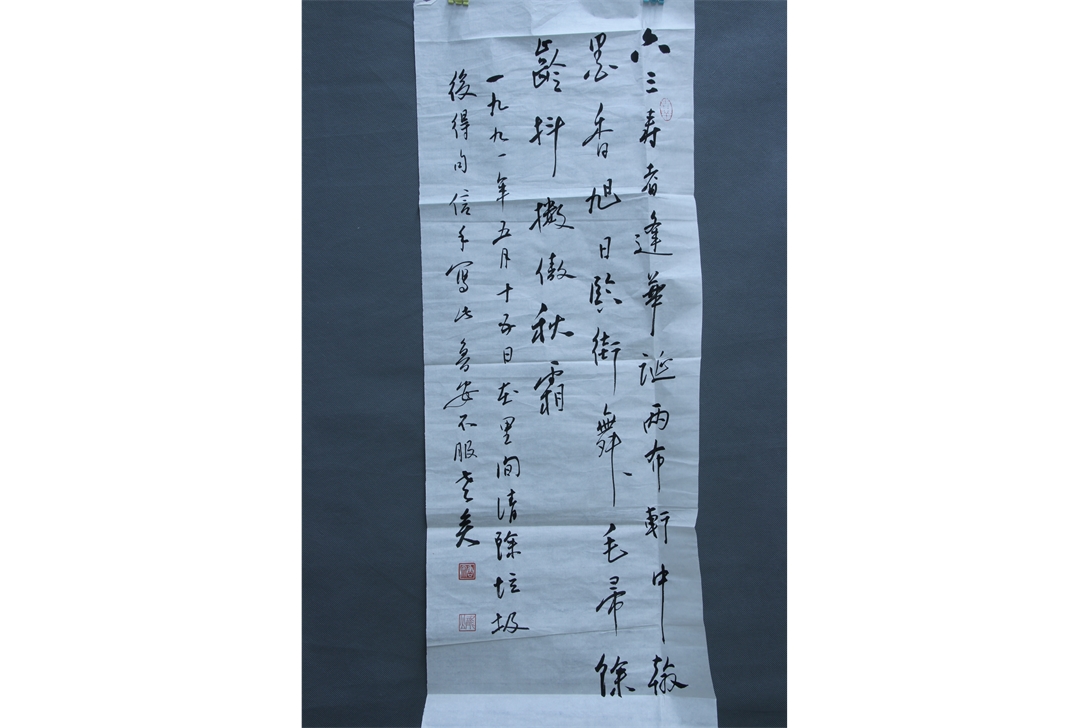 六三寿者逢華誕兩布軒中翰
墨香旭日臨街舞毛帚餘
齡抖擻傲秋霜
一九九一年五月十五日在里间清除垃圾
後得句信手寫此魯安不服老叟